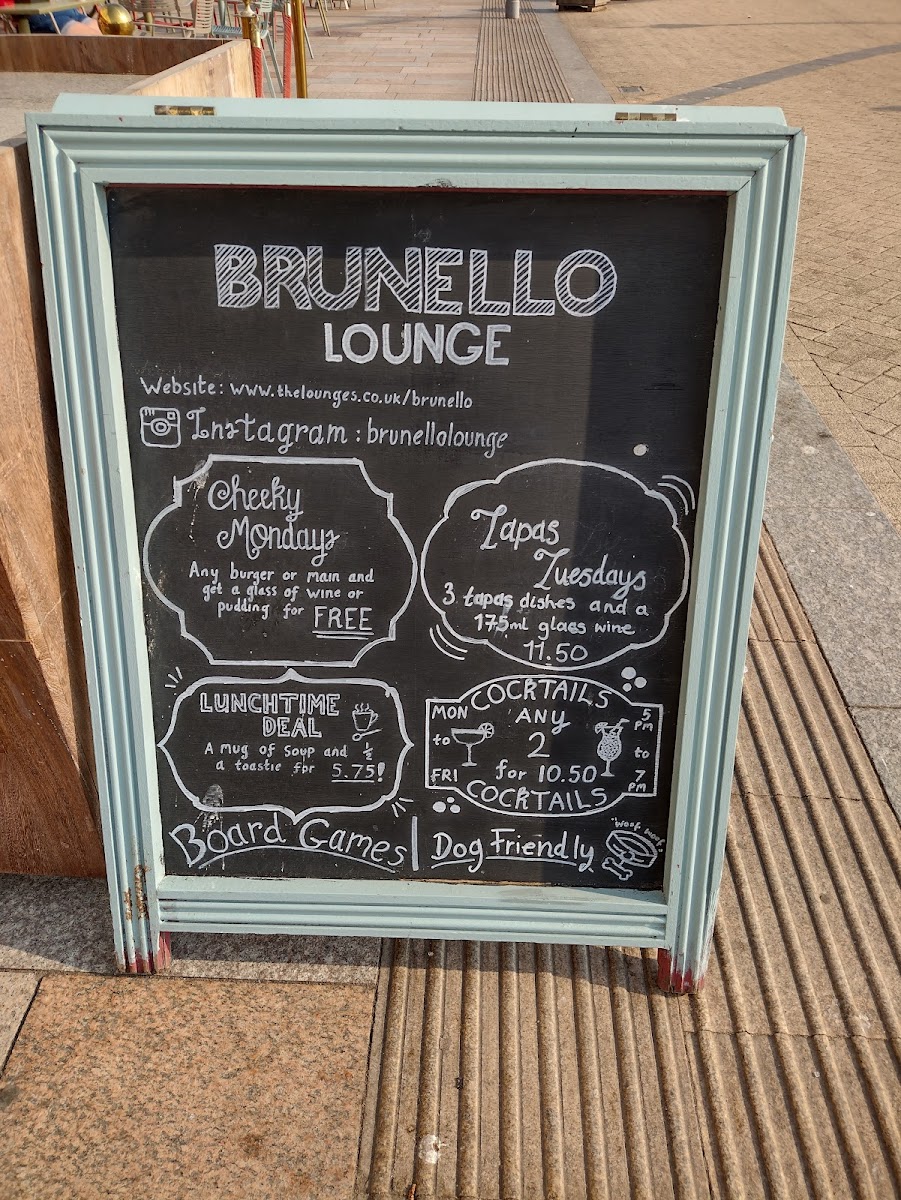 BRUNELLO
LOUNGE
Website: www.thelounges.co.uk/brunello
Instagram: brunellolounge
Cheeky
Mondays
Any burger or main and
get a glass of wine or
pudding for FREE
Tapas
Tuesdays
3 tapas dishes and a
175ml glass wine
11.50
LUNCHTIME
DEAL
A mug of soup and 1/2
a toastie for 5.75!
COCKTAILS
MON
to
FRI
ANY
2
for 10.50
COCKTAILS
5
PM
to
7
PM
Board Games
Dog Friendly
"woof woof"